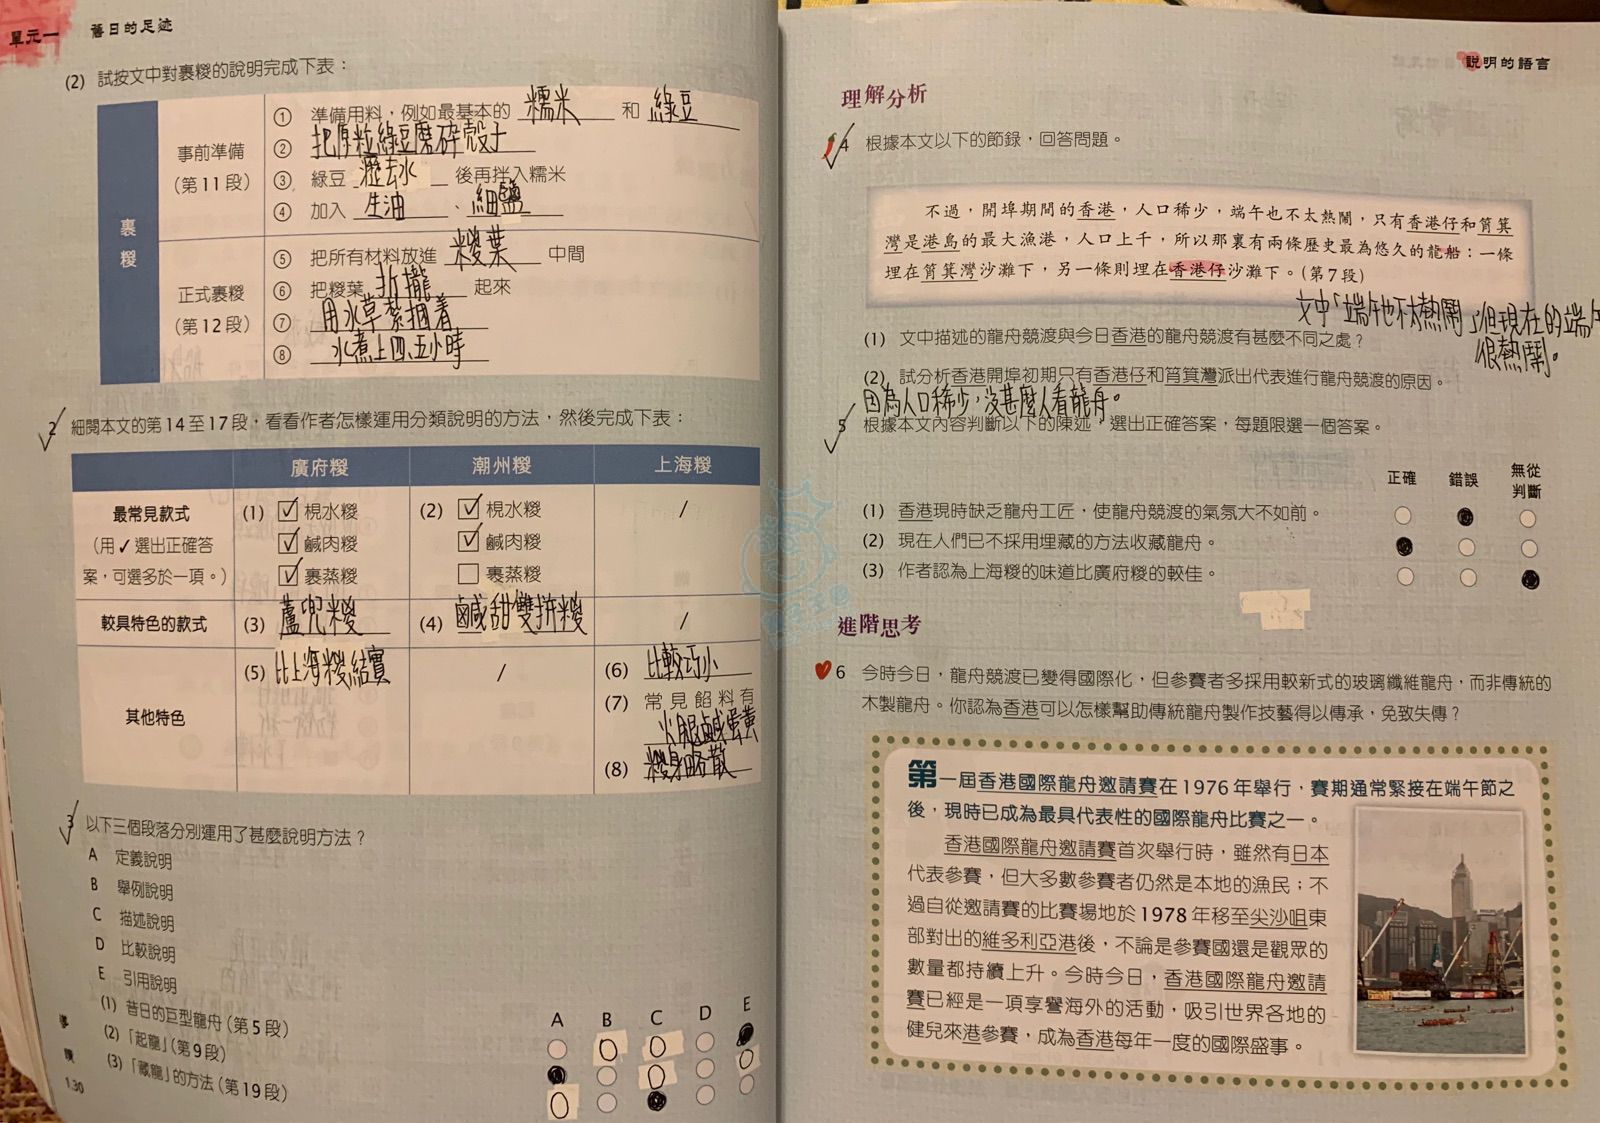 單元一 舊日的足迹
(2) 試按文中對裹糉的說明完成下表：
裹糉
事前準備
(第11段)
① 準備用料，例如最基本的 糯米 和 綠豆
② 把原粒綠豆磨碎殼子
③ 綠豆 瀝去水 後再拌入糯米
④ 加入 生油 、 細鹽
正式裹糉
(第12段)
⑤ 把所有材料放進 糉葉 中間
⑥ 把糉葉 折攏 起來
⑦ 用水草紮捆着
⑧ 水煮上四、五小時
2 細閱本文的第14至17段，看看作者怎樣運用分類說明的方法，然後完成下表：
廣府糉 潮州糉 上海糉
最常見款式
(用✓選出正確答
案，可選多於一項。)
(1) ☑ 梘水糉
☑ 鹹肉糉
☑ 裹蒸糉
(2) ☑ 梘水糉
☑ 鹹肉糉
☐ 裹蒸糉
/
較具特色的款式 (3) 蘆兜糉 (4) 鹹甜雙拼糉 /
其他特色
(5) 比上海糉結實
/
(6) 比較巧小
(7) 常見餡料有
火腿鹹蛋黃
(8) 糉身略散
3 以下三個段落分別運用了甚麼說明方法？
A 定義說明
B 舉例說明
C 描述說明
D 比較說明
E 引用說明
A B C D E
(1) 昔日的巨型龍舟(第5段)
(2) 「起龍」(第9段)
(3) 「藏龍」的方法(第19段)
1.30
說明的語言
理解分析
4 根據本文以下的節錄，回答問題。
不過，開埠期間的香港，人口稀少，端午也不太熱鬧，只有香港仔和筲箕
灣是港島的最大漁港，人口上千，所以那裏有兩條歷史最為悠久的龍船：一條
埋在筲箕灣沙灘下，另一條則埋在香港仔沙灘下。(第7段)
文中「端午也不太熱鬧」但現在的端午
很熱鬧。
(1) 文中描述的龍舟競渡與今日香港的龍舟競渡有甚麼不同之處？
(2) 試分析香港開埠初期只有香港仔和筲箕灣派出代表進行龍舟競渡的原因。
因為人口稀少，沒甚麼人看龍舟。
5 根據本文內容判斷以下的陳述，選出正確答案，每題限選一個答案。
正確 錯誤 無從
判斷
(1) 香港現時缺乏龍舟工匠，使龍舟競渡的氣氛大不如前。
(2) 現在人們已不採用埋藏的方法收藏龍舟。
(3) 作者認為上海糉的味道比廣府糉的較佳。
進階思考
6 今時今日，龍舟競渡已變得國際化，但參賽者多採用較新式的玻璃纖維龍舟，而非傳統的
木製龍舟。你認為香港可以怎樣幫助傳統龍舟製作技藝得以傳承，免致失傳？
第一屆香港國際龍舟邀請賽在1976年舉行，賽期通常緊接在端午節之
後，現時已成為最具代表性的國際龍舟比賽之一。
香港國際龍舟邀請賽首次舉行時，雖然有日本
代表參賽，但大多數參賽者仍然是本地的漁民；不
過自從邀請賽的比賽場地於1978年移至尖沙咀東
部對出的維多利亞港後，不論是參賽國還是觀眾的
數量都持續上升。今時今日，香港國際龍舟邀請
賽已經是一項享譽海外的活動，吸引世界各地的
健兒來港參賽，成為香港每年一度的國際盛事。